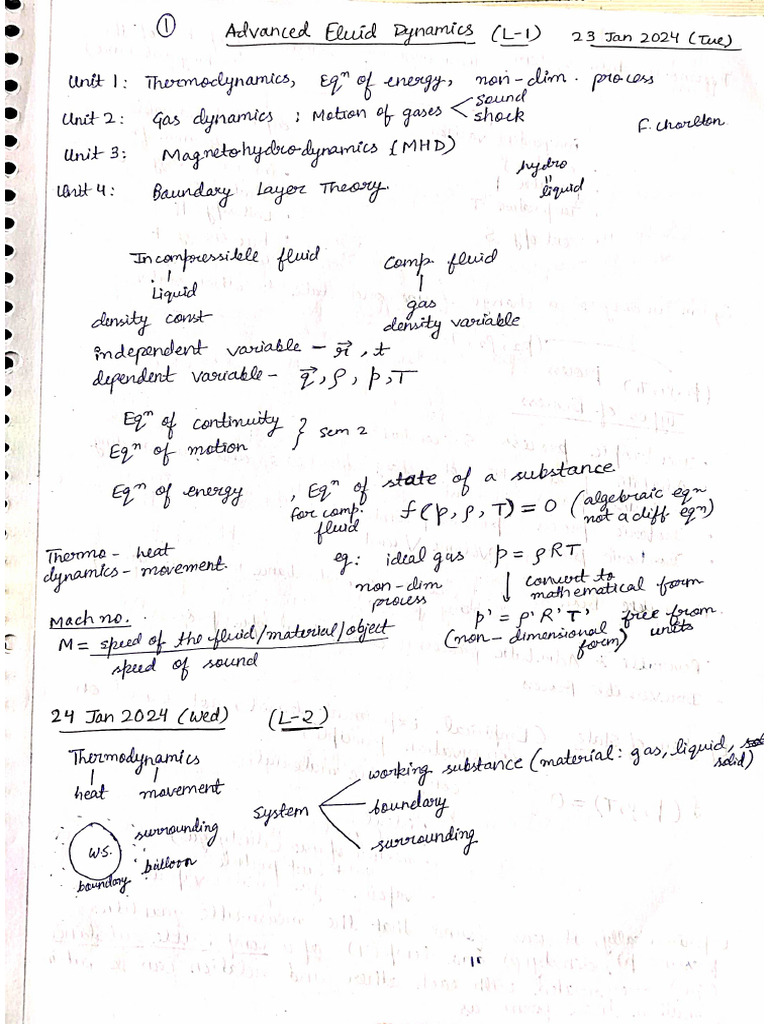 ① Advanced Fluid Dynamics (L-1) 23 Jan 2024 (Tue)
Unit 1: Thermodynamics, Eqⁿ of energy, non-dim. process
Unit 2: Gas dynamics ; Motion of gases < sound
shock
F. Chorlton
Unit 3: Magnetohydrodynamics (MHD)
hydro
"
liquid
Unit 4: Baundary Layer Theory.
Incompressible fluid
Liquid
density const
Comp. fluid
gas
density variable
independent variable - r⃗, t
dependent variable - q⃗, ρ, p, T
Eqⁿ of continuity
Eqⁿ of motion } sem 2
Eqⁿ of energy , Eqⁿ of state of a substance
for comp. fluid
f(p, ρ, T) = 0 (algebraic eqn not a diff eqⁿ)
Thermo - heat
dynamics - movement.
eg: ideal gas p = ρRT
non-dim process
↓ convert to mathematical form
p' = ρ'R'T' free from units
(non-dimensional form)
Mach no.
M = speed of the fluid/material/object
speed of sound
24 Jan 2024 (Wed) (L-2)
Thermodynamics
heat movement
System
working substance (material: gas, liquid, solid)
boundary
surrounding
W.S.
surrounding
balloon
boundary